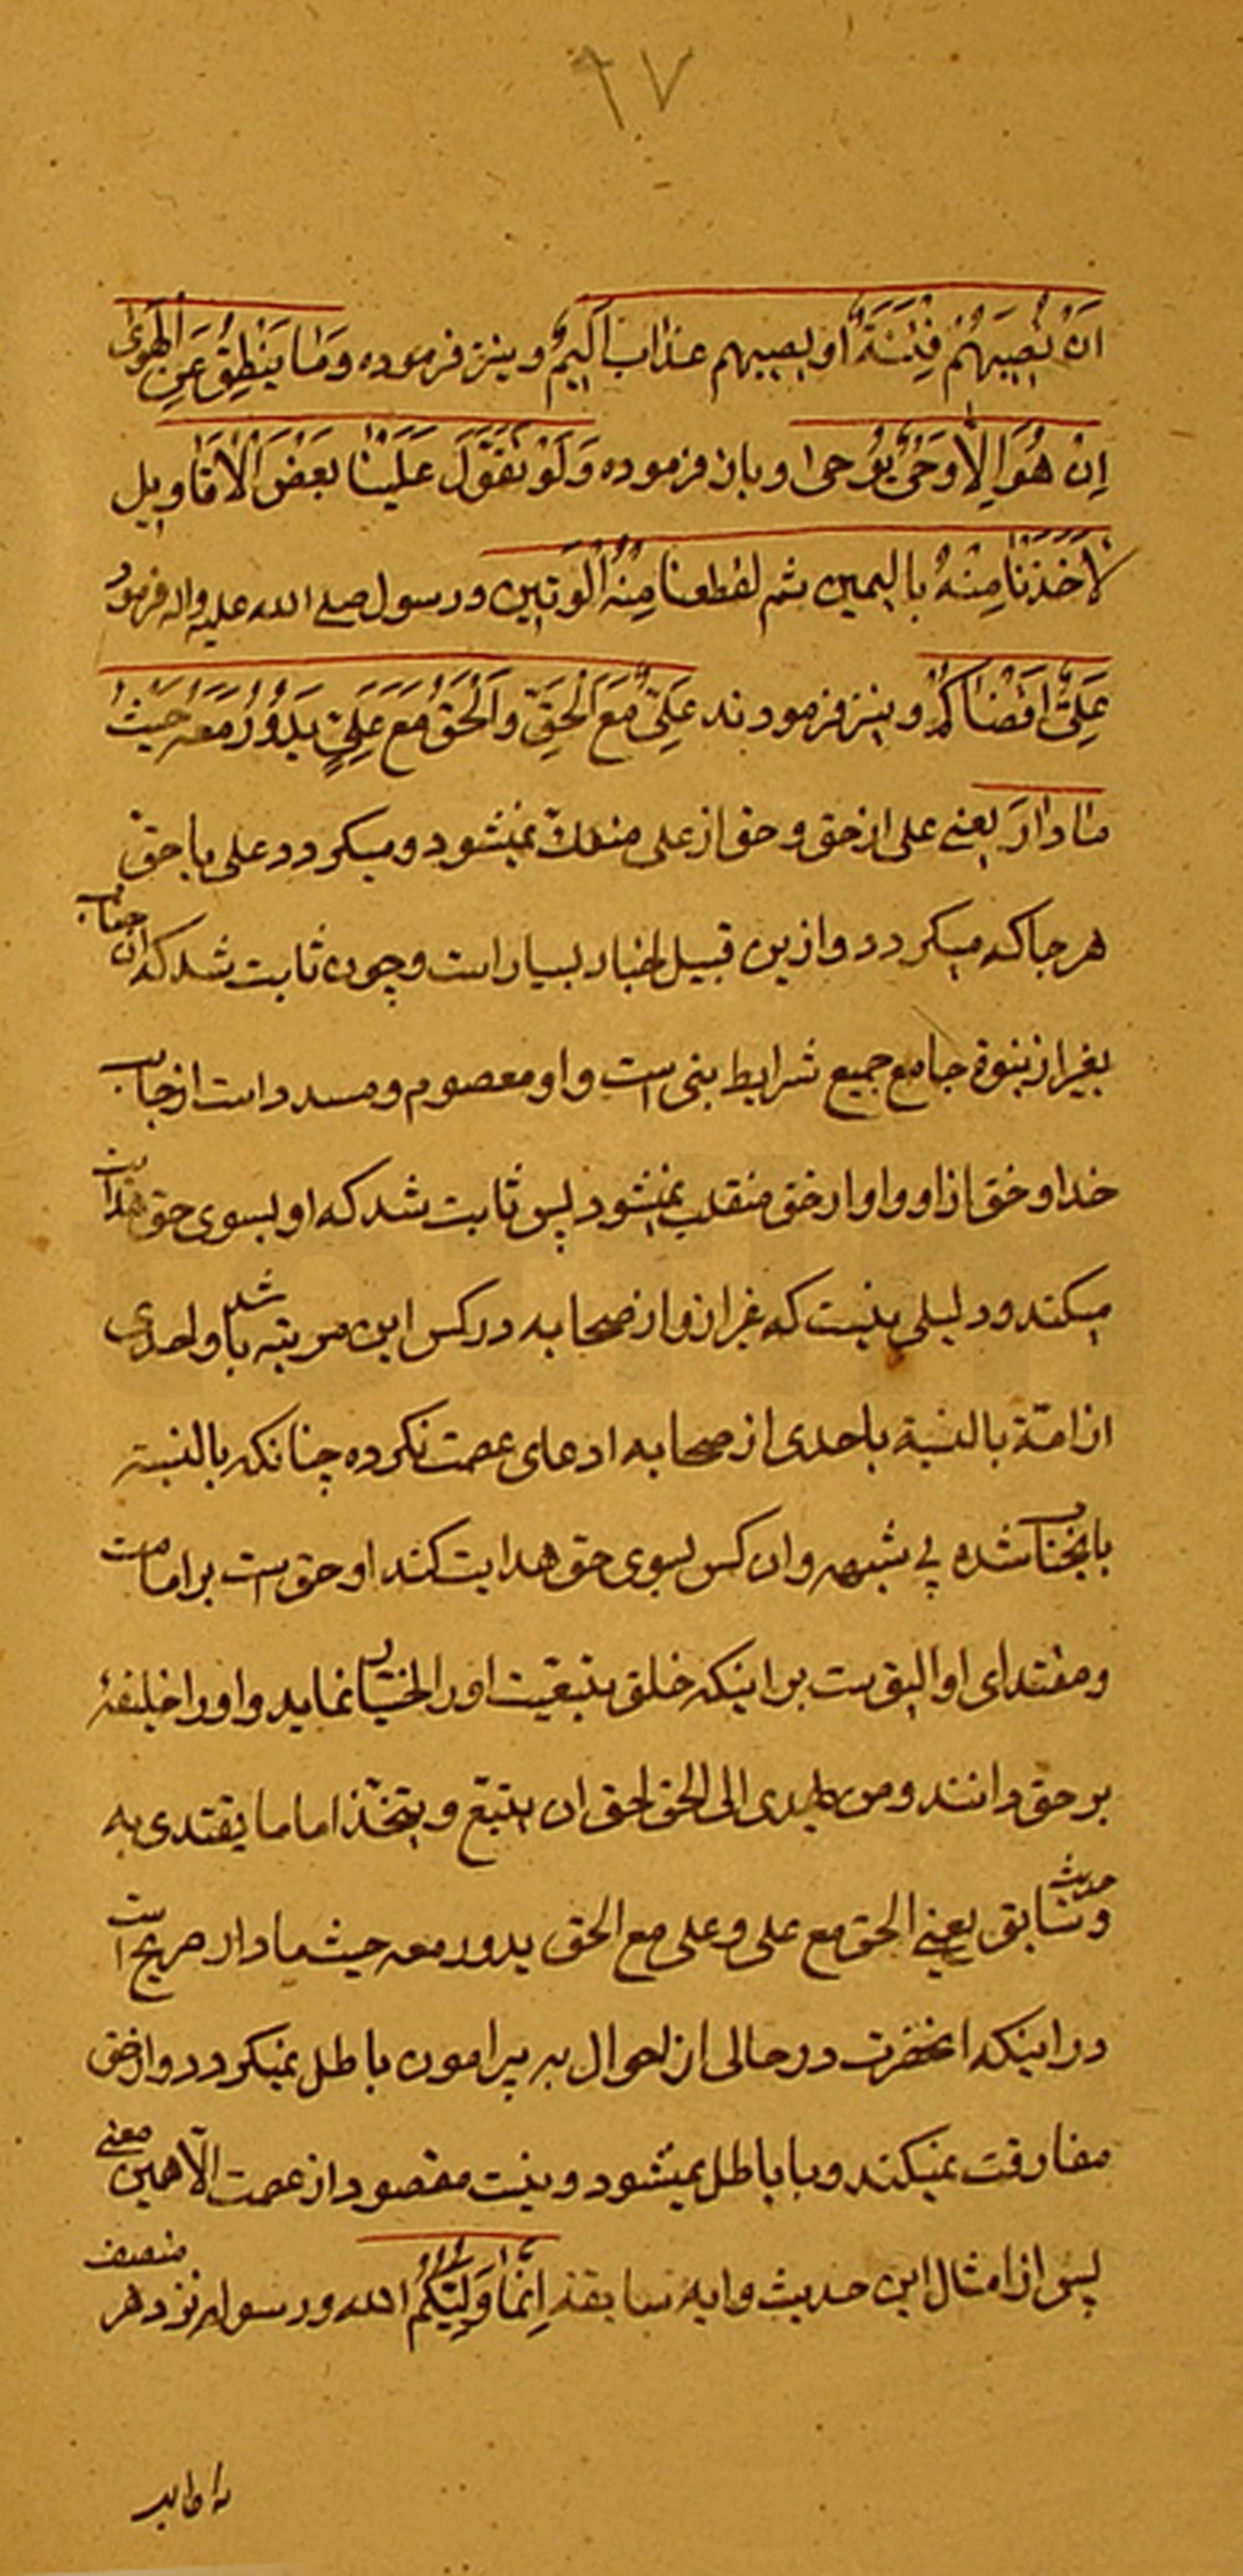 ٩٧
اَنْ تُصِيبَهُمْ فِتْنَةٌ اَو يصيبهم عذاب اَلِيمٌ و نيز فرموده وَمَا يَنْطِقُ عَنِ الْهَوىٰ
اِنْ هُوَ اِلاّ وَحْىٌ يُوحىٰ و باز فرموده وَلَوْ تَقَوَّلَ عَلَيْنَا بَعْضَ الْاَقَاويل
لَاَخَذْنَا مِنْهُ باليمين ثم لقطعنا مِنْهُ الْوَتين و رسول صلى الله عليه واله فرمود
عَلِىٌّ اَقْضَاكُمْ و نيز فرمودند عَلِىٌّ مَعَ الْحَقِّ وَالْحَقُّ مَعَ عَلِىٍّ يَدُورُ مَعَهُ حَيْثُ
مٰا دٰارَ يعنے على از حق و حق از على منفك نميشود و ميكردد على با حق
هر جا كه ميكردد و ازين قبيل اخبار بسيار است و چون ثابت شد كه ان جناب
بغير از نبوة جامع جميع شرايط نبى است و او معصوم و مسدد است از جانب
خدا و حق از او و او از حق منقلب نميشود پس ثابت شد كه او بسوى حق هدايت
ميكند و دليلى نيست كه غير از او از صحابه در كس اين مرتبه باشد و احدى
از امّة بالنسبة باحدى از صحابه ادعاى عصمت نكرده چنانكه بالنسبته
بانجناب شده بے شبهه و ان كس بسوى حق هدايت كند او حق است بر امامت
و مقتداى او اليق است بر اينكه خلق بتبعيت او را اختيار نمايد و او را خليفهٔ
بر حق دانند و من يهدى الى الحق احق ان يتبع و يتخذ اماما يقتدى به
و حديث سابق يعنے الحق مع على و على مع الحق يدور معه حيث ما دار صريح است
در اينكه انحضرت در حالى از احوال به پيرامون باطل نميكردد و از حق
مفارقت نميكند و با باطل نميشود و نيست مقصود از عصمت الّا همين معنے
پس از امثال اين حديث و ايه سابقه اِنَّمَا وَلِيُّكُمُ الله و رسوله نزد هر منصف